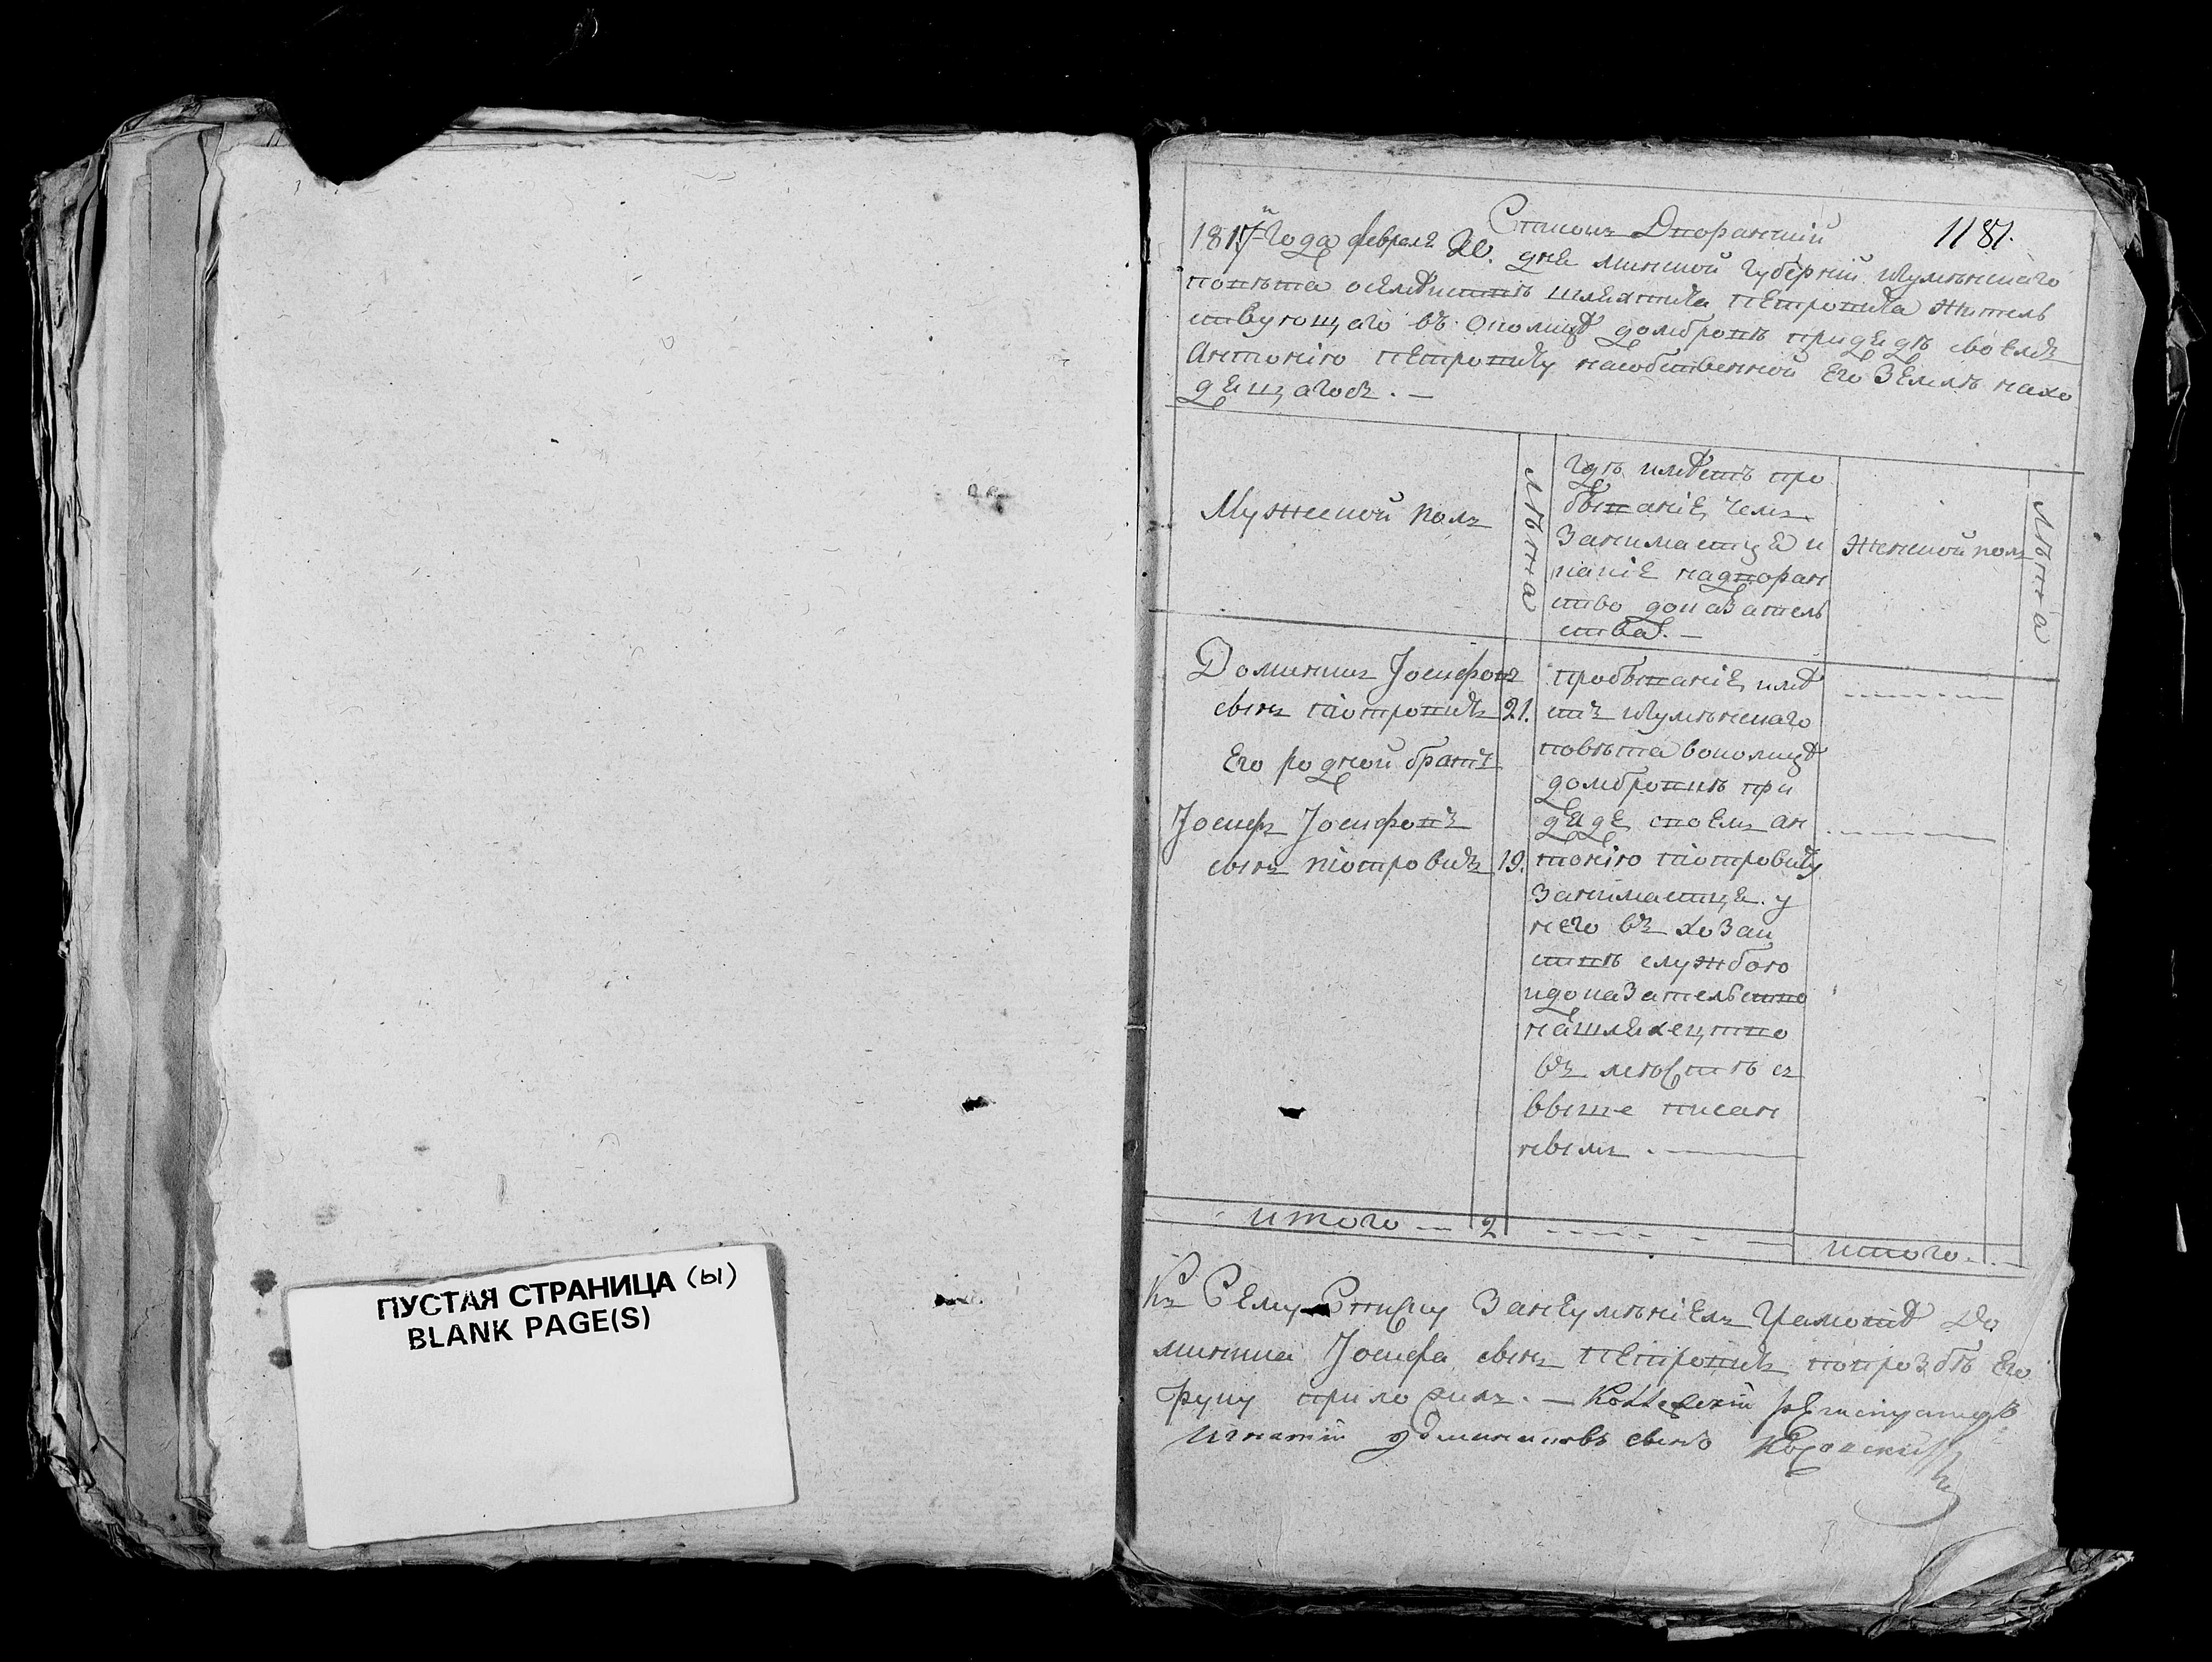 ПУСТАЯ СТРАНИЦА (ы)
BLANK PAGE(S)
Списокъ Дворанский
1181.
1817й года февраля 20. дня минской губерний игуменскаго
повѣта оселѣдисти шляхтича петровича жытель
ствующаго въ околицѣ домбровѣ придядѣ своемъ
Антонію петровичу насобственной его землѣ нахо
дящагось. —
Мужеской полъ
лѣта
гдѣ имѣетъ про
бываніе, чемъ
занимаетца и
какіе надворан
ство доказатель
ства. —
женской полъ
лѣта
Доминикъ Іосифовъ
сынъ піотровичъ 21.
Его родной братъ
Іосифъ Іосифовъ
сынъ піотровичъ 19.
пробываніе имѣ
етъ игуменскаго
повѣта воколицѣ
домбровкѣ при
дядѣ своемъ ан
тонію піотровичу
занимаетце у
него въ хозаи
ствѣ службою
идоказательство
нашляхецтво
въ мѣстѣ съ
выше писан
нымъ . —
итого — 2
итого . —
Къ сему списку занеумѣніемъ грамотѣ До
миника Іосифа сынъ петровичъ попрозбѣ его
руку приложилъ. — Коллежски регистраторъ
Игнатий доминиковъ сынъ